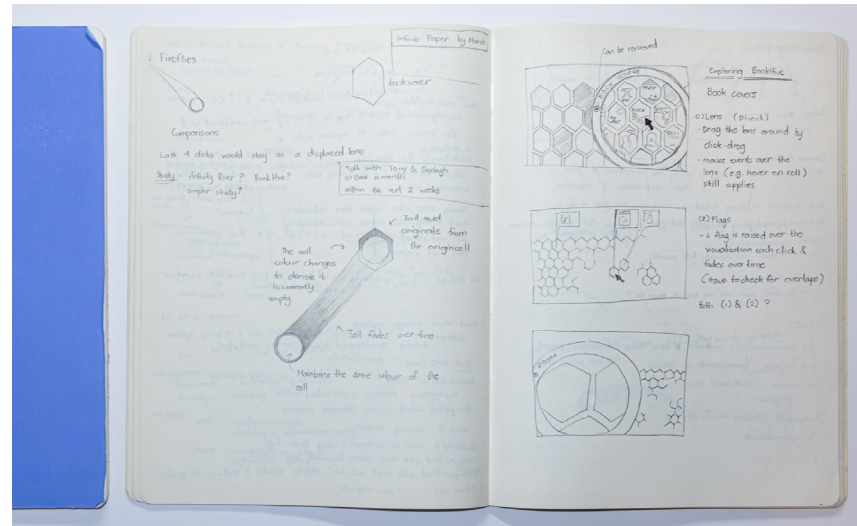 Fireflies
Infinite Paper by
book cover
Comparisons
Last 4 clicks would stay as a displaced lens
Study - Activity River ? Book Hive?
simpler study?
Talk with Tony &
in a month
within the next 2 weeks
Tail must
originate from
the origin cell
The cell
colour changes
to denote it
is currently
empty
Tail fades over time
Maintains the same colour of the
cell
Can be removed
BOOK COVERS
ZOOM
Exploring BookHive
Book covers
(1) Lens (Direct)
- Drag the lens around by
click-drag
- mouse events over the
lens (e.g. hover on cell)
still applies
(2) Flags
- a flag is raised over the
visualisation each click &
fades over time
(Have to check for overlaps)
Both (1) & (2) ?